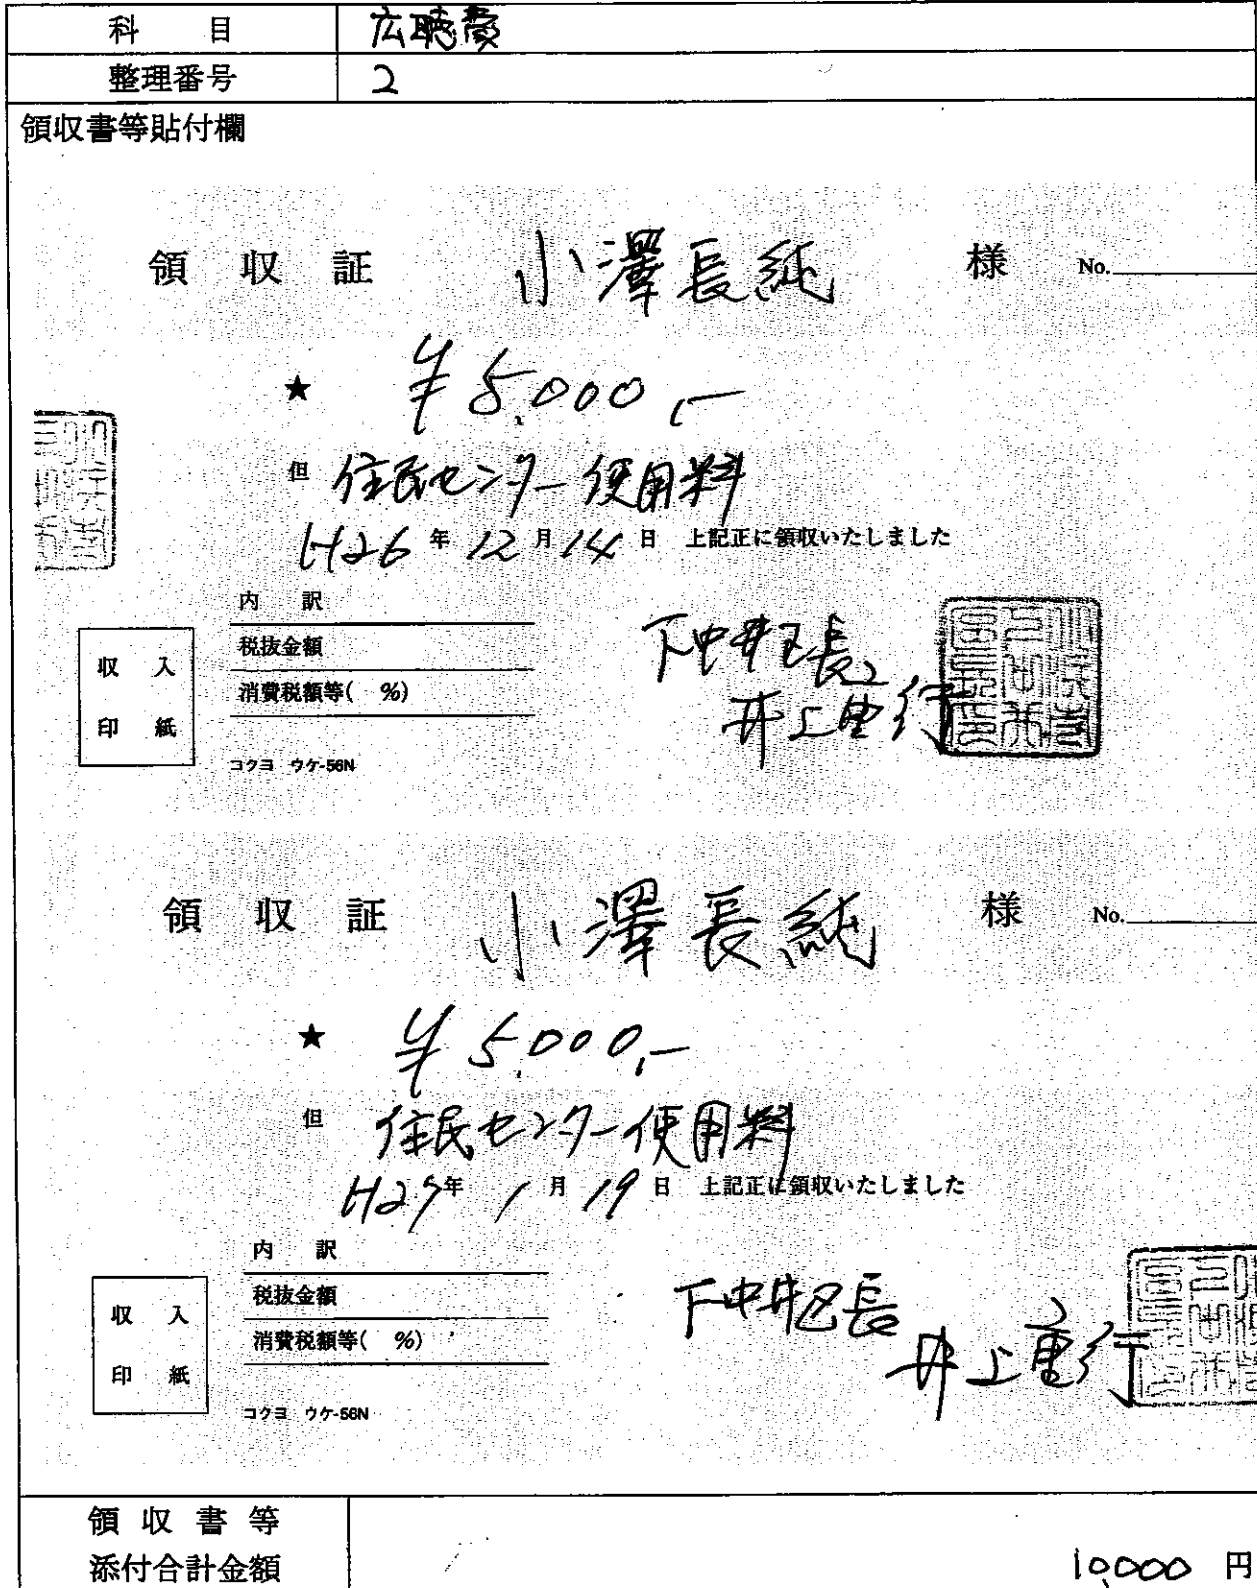 科 目 広聴費
整理番号 2
領収書等貼付欄
領 収 証 小澤長純 様 No.
★ ¥5,000,-
但 住民センター使用料
H26年12月14日 上記正に領収いたしました
内 訳
税抜金額
消費税額等( %)
収入印紙
コクヨ ウケ-56N
下中井区長
井上重行
領 収 証 小澤長純 様 No.
★ ¥5,000,-
但 住民センター使用料
H27年1月19日 上記正に領収いたしました
内 訳
税抜金額
消費税額等( %)
収入印紙
コクヨ ウケ-56N
下中井区長
井上重行
領収書等
添付合計金額 10,000 円